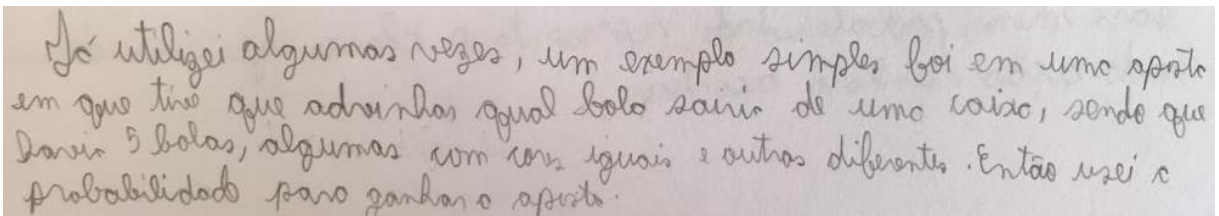 Já utilizei algumas vezes, um exemplo simples foi em uma aposta
em que tive que advinhar qual bola sairia de uma caixa, sendo que
havia 5 bolas, algumas com cores iguais e outras diferentes. Então usei a
probabilidade para ganhar a aposta.